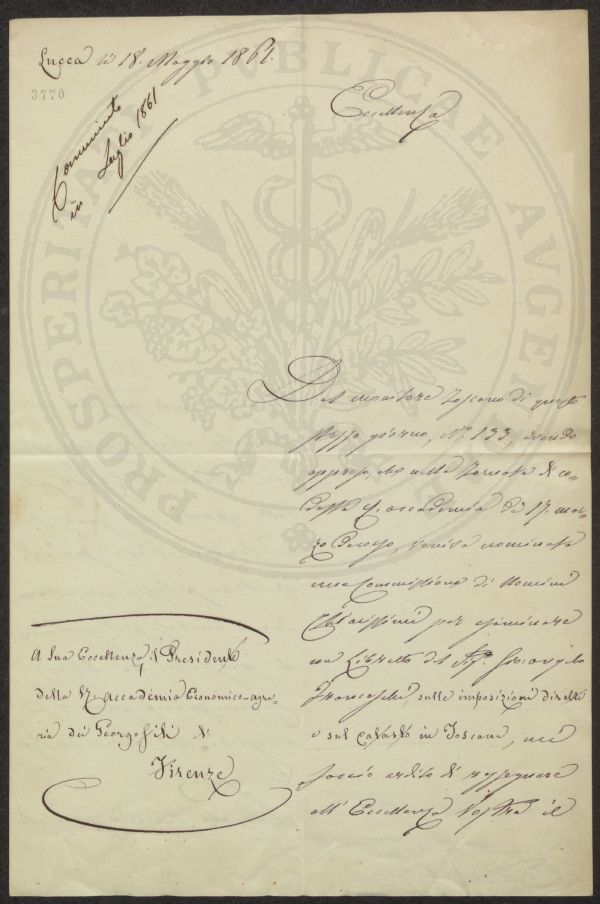 Lucca li 18. Maggio 1861.
3770
in Luglio 1861
Eccellenza
Dal monitore Toscano di questo
stesso giorno, N.º 133, avendo
appreso che nella Tornata di co-
desta I. accademia de' 17. mar-
zo decorso, veniva nominata
una Commissione di Uomini
Chiarissimi per esaminare
un Libretto del Sig.
Franceschi, sulle imposizioni dirette
e sul catasto in Toscana, mi
faccio ardito di rassegnare
all' Eccellenza Vostra il
A Sua Eccellenza il Presidente
della R. Accademia Economico-agra-
ria dei Georgofili di
Firenze
PROSPERITATI PUBLICAE AUGENDAE